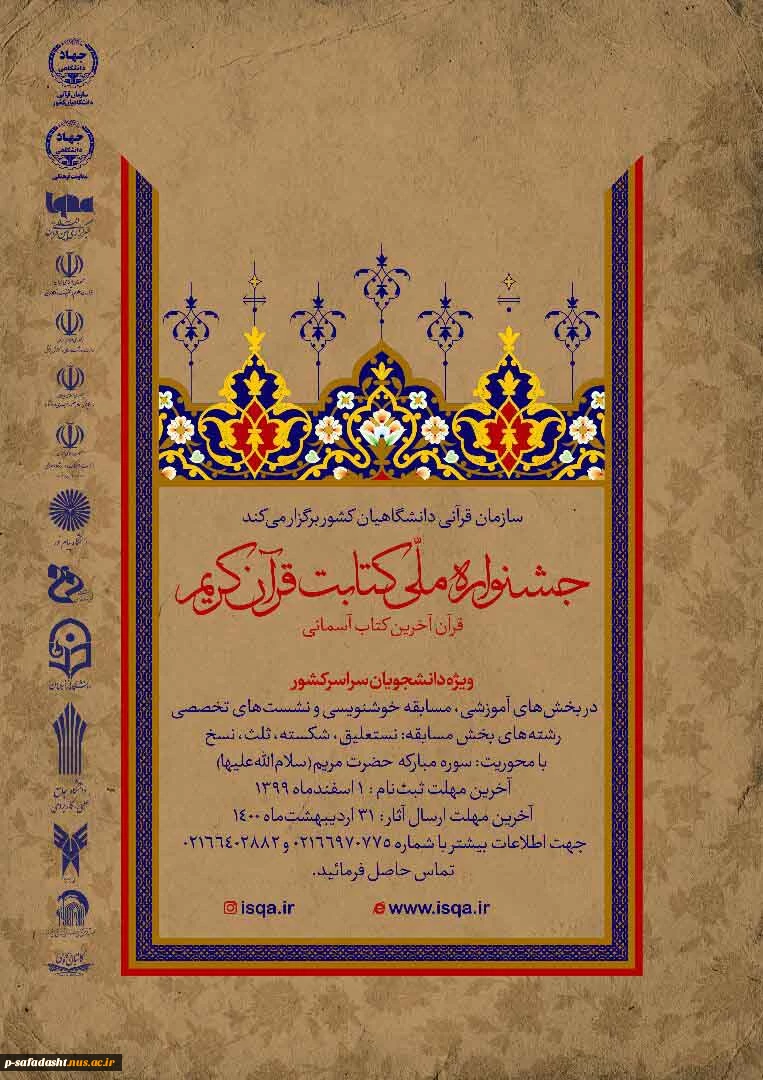 سازمان قرآنی دانشگاهیان کشور برگزار می‌کند
جشنواره ملّی کتابت قرآن کریم
قرآن آخرین کتاب آسمانی
ویژه دانشجویان سراسر کشور
در بخش‌های آموزشی، مسابقه خوشنویسی و نشست‌های تخصصی
رشته‌های بخش مسابقه: نستعلیق، شکسته، ثلث، نسخ
با محوریت: سوره مبارکه حضرت مریم(سلام‌الله‌علیها)
آخرین مهلت ثبت‌نام : ۱ اسفندماه ۱۳۹۹
آخرین مهلت ارسال آثار: ۳۱ اردیبهشت‌ماه ۱۴۰۰
جهت اطلاعات بیشتر با شماره ۰۲۱۶۶۹۷۰۷۷۵ و ۰۲۱۶۶۴۰۲۸۸۲
تماس حاصل فرمائید.
isqa.ir www.isqa.ir
جهاد
دانشگاهی
سازمان قرآنی
دانشگاهیان کشور
جهاد
دانشگاهی
معاونت فرهنگی
p-safadasht.nus.ac.ir